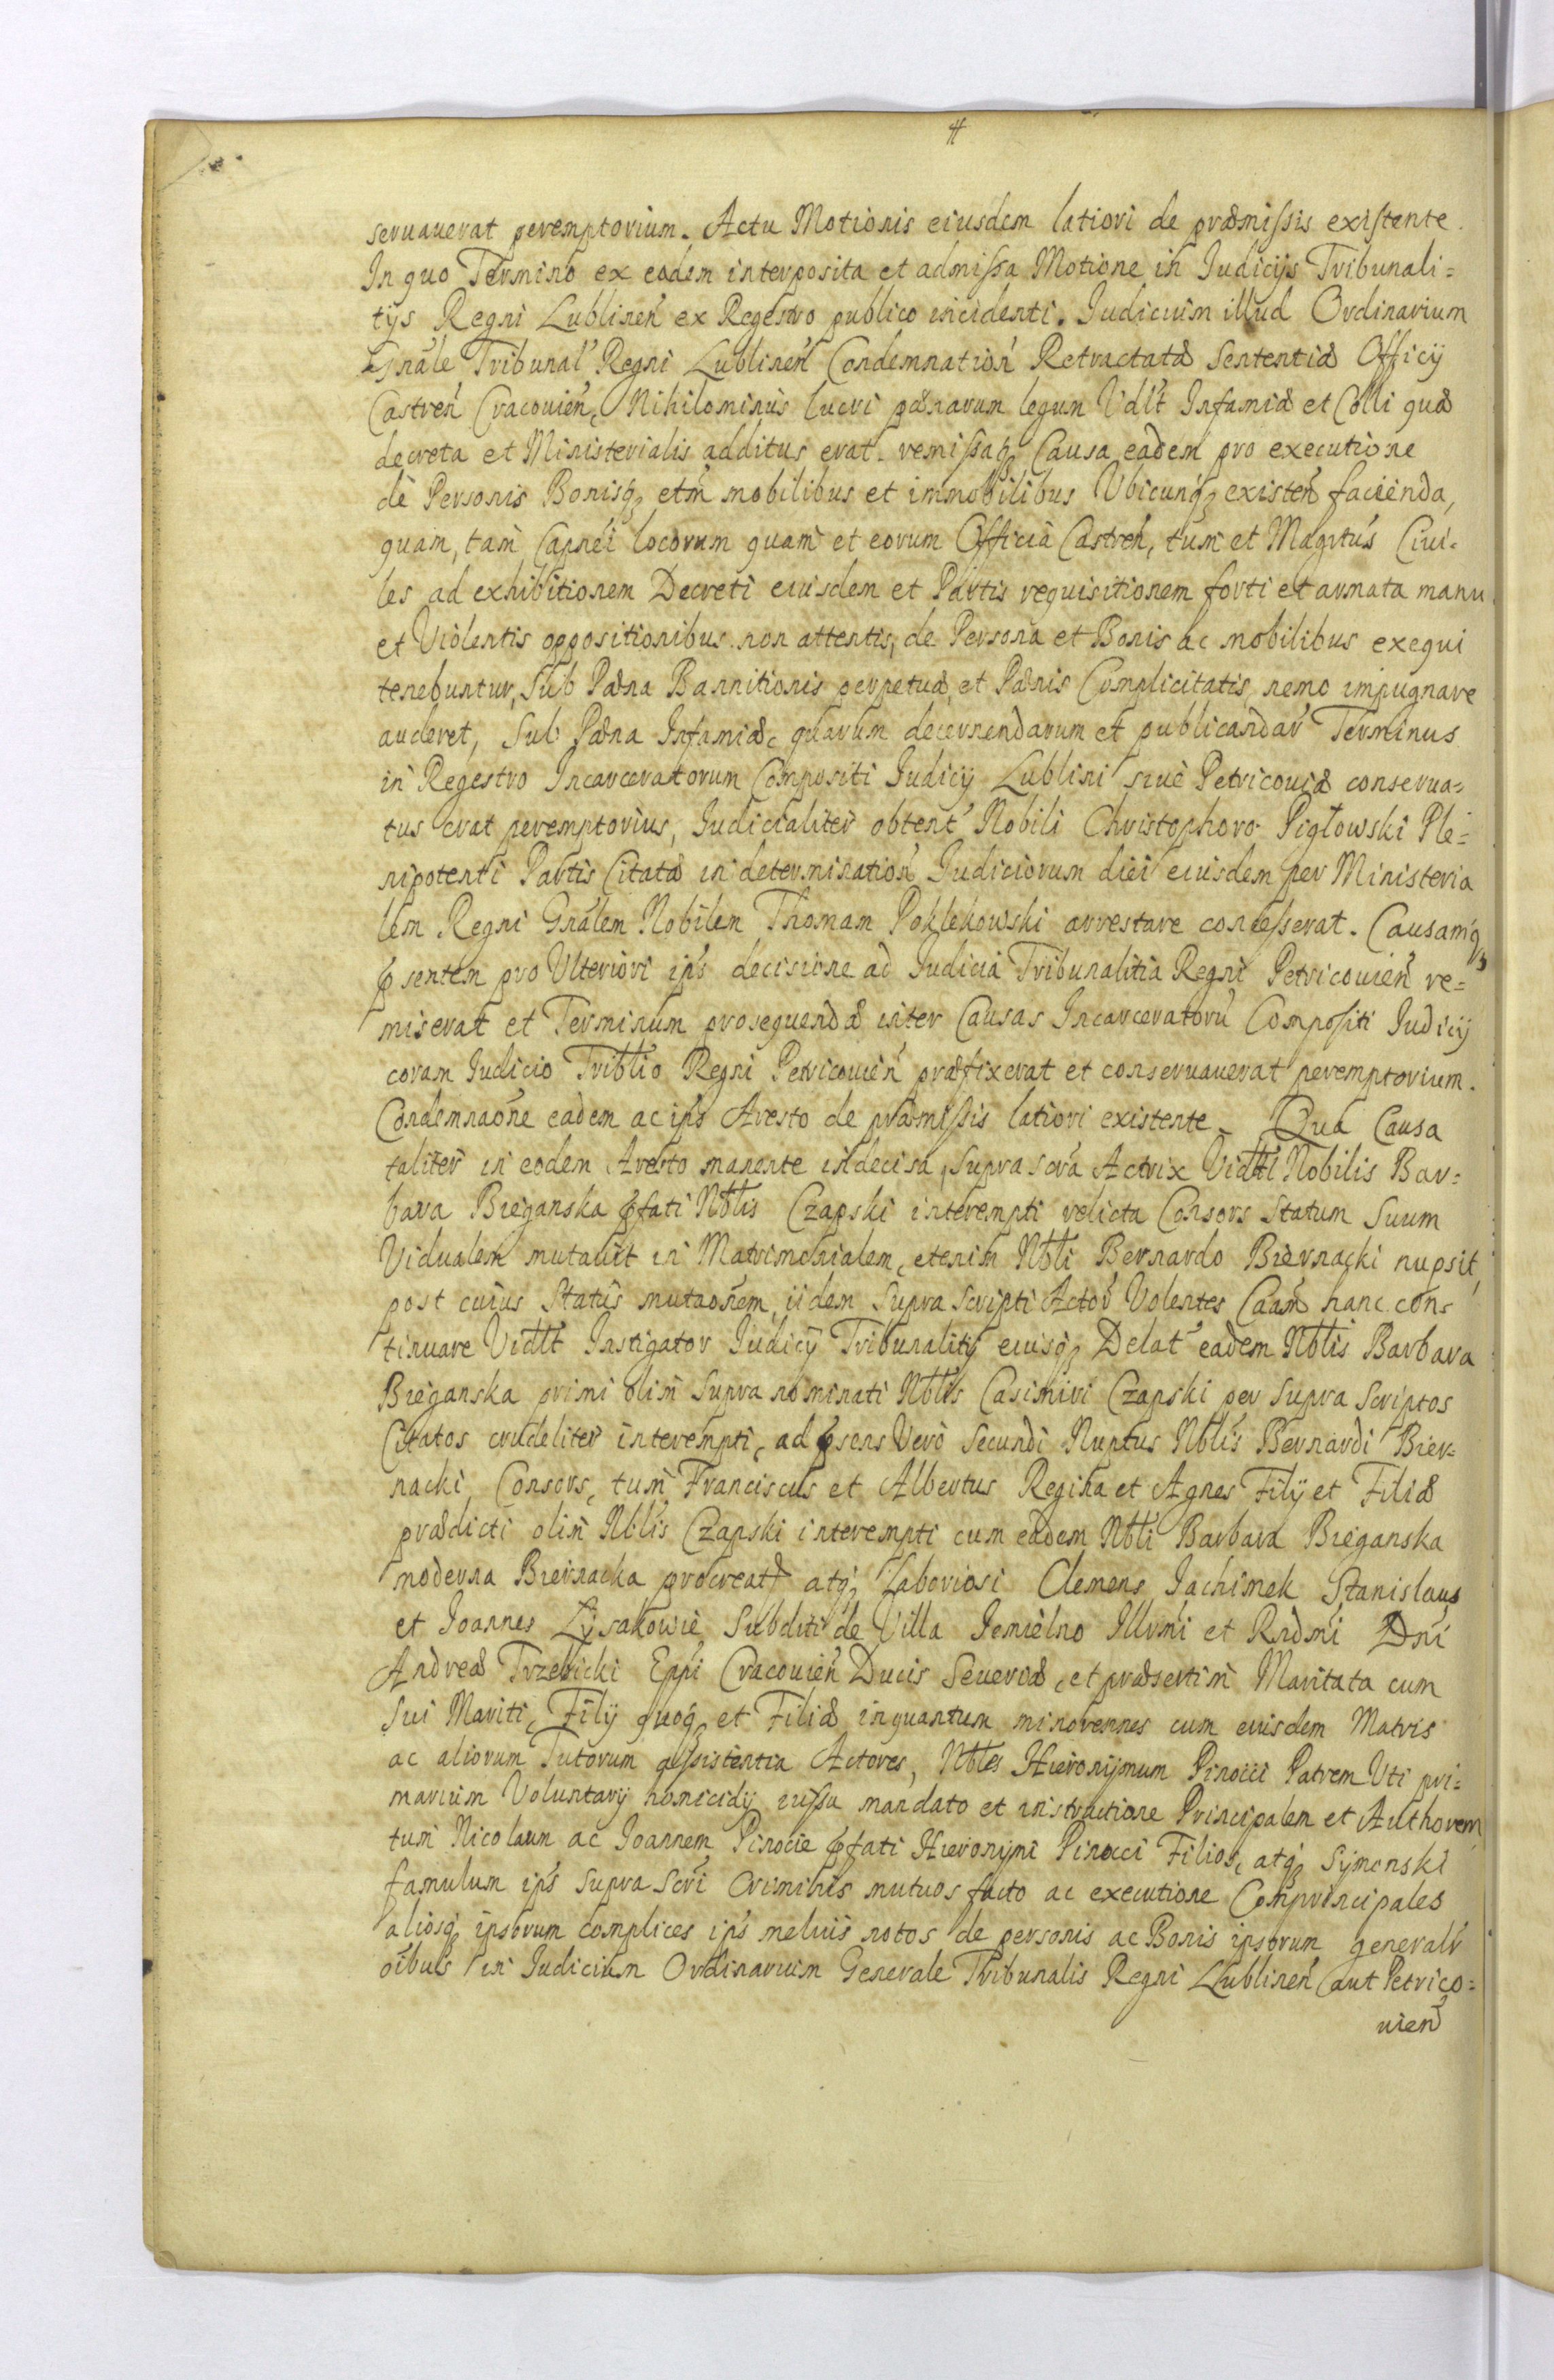 seruauerat peremptorium. Actu Motionis eiusdem latiori de præmissis existente.
In quo Termino ex eadem interposita et admissa Motione in Judicijs Tribunali=
tijs Regni Lublinen̄ ex Regestro publico incidenti. Judicium illud Ordinarium
Gnāle Tribunal Regni Lublinen̄ Condemnation̄ Retractatæ Sententiæ Officij
Castren̄ Cracouien̄, Nihilominus lucri pænarum legum Vdlt Infamiæ et Colli quæ
decreta et Ministerialis additus erat remissaq₃ Causa eadem pro executione
de Personis Bonisq₃ etm̄ mobilibus et immobilibus Vbicunq₃ existen̄ facienda,
quam, tam Capnei locorum quam et eorum Officia Castren̄, tum et Magrtus Ciui=
les ad exhibitionem Decreti eiusdem et Partis requisitionem forti et armata manu
et Violentis oppositionibus non attentis, de Persona et Bonis ac mobilibus exequi
tenebuntur, Sub Pæna Bannitionis perpetuæ, et Pænis Complicitatis, nemo impugnare
auderet, Sub Pæna Infamiæ, quarum decernendarum et publicandar̄ Terminus
in Regestro Incarceratorum Compositi Judicij Lublini siue Petricouiæ conserua=
tus erat peremptorius, Judicialiter obtent̄ Nobili Christophoro Pigłowski Ple=
nipotenti Partis Citatæ in determination̄ Judiciorum diei eiusdem per Ministeria
lem Regni Gnālem Nobilem Thomam Poklekowski arrestare concesserat. Causamq₃
ꝓsentem pro Vlteriori ips̄ decisione ad Judicia Tribunalitia Regni Petricouien̄ re=
miserat et Terminum prosequendæ inter Causas Incarceratorū Compositi Judicij
coram Judicio Triblio Regni Petricouien̄ præfixerat et conseruauerat peremptorium.
Condemnaōne eadem ac ipo Aresto de præmissis latiori existente. Qua Causa
taliter in eodem Aresto manente indecisa, supra scrā Actrix Vidlti Nobilis Bar=
bara Bieganska ꝓfati Nblis Czapski interempti relicta Consors Statum Suum
Vidualem mutauit in Matrimonialem, etenim Nbli Bernardo Biernacki nupsit,
post cuius Status mutaōnem, iidem Supra Scripti Actor̄ Volentes Caām hanc con=
tinuare Vidlt Instigator Judicij Tribunalitij eiusq₃ Delat̄ eadem Nblis Barbara
Bieganska primi olim Supra nominati Nblis Casimiri Czapski per Supra Scriptos
Citatos crudeliter interempti, ad ꝓsens Vero Secundi Nuptus Nblis Bernardi Bier=
nacki Consors, tum Franciscus et Albertus Regina et Agnes Filij et Filiæ
prædicti olim Nblis Czapski interempti cum eadem Nbli Barbara Bieganska
moderna Biernacka procreatæ atq₃ Laboriosi Clemens Jachimek Stanislaus
et Joannes Lysakowie Subditi de Villa Jemielno Illrmi et Rndmi Dni
Andreæ Trzebicki Eppi Cracouien̄ Ducis Seueriæ, et præsertim Maritata cum
Sui Mariti, Filij quoq₃ et Filiæ inquantum minorennes cum eiusdem Matris
ac aliorum Tutorum assistentia Actores, Nbles Hieronymum Pinocci Patrem Vti pri=
marium Voluntarij homicidij iussu mandato et instructione Principalem et Authorem
tum Nicolaum ac Joannem Pinocie ꝓfati Hieronymi Pinocci Filios, atq₃ Symonski
famulum ips̄ supra Scrī Criminis mutuos facto ac executione Comprincipales
aliosq₃ ipsorum complices ips̄ melius notos de personis ac Bonis ipsorum generalr̄
oībus in Judicium Ordinarium Generale Tribunalis Regni Lublinen̄ aut Petrico=
uien̄